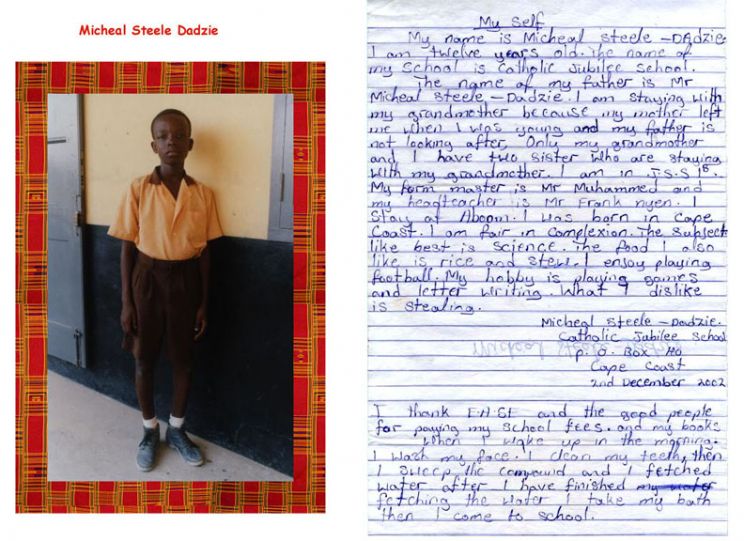 Micheal Steele Dadzie
My Self
My name is Micheal Steele - DAdzie.
I am twelve years old. The name of
my School is Catholic Jubilee School.
The name of my father is Mr
Micheal Steele - Dadzie. I am staying with
my grandmother because my mother left
me when I was young and my father is
not looking after, Only my grandmother
and I have two sister who are staying
with my grandmother. I am in J.S.S 1B.
My form master is Mr Muhammed and
my headteacher is Mr Frank nyen. I
Stay at Aboom. I was born in Cape
Coast. I am fair in complexion. The Subject
like best is Science. The food I also
like is rice and stew. I enjoy playing
football. My hobby is playing games
and letter writing. What I dislike
is Stealing.
Micheal Steele - Dadzie.
Catholic Jubilee School
P. O. Box Ho
Cape Coast
2nd December 2002
I thank and the good people
for paying my school fees. and my books
when I wake up in the morning.
I wash my face. I clean my teeth, then
I sweep the compound and I fetched
water after I have finished my water
fetching the water I take my bath
then I come to school.